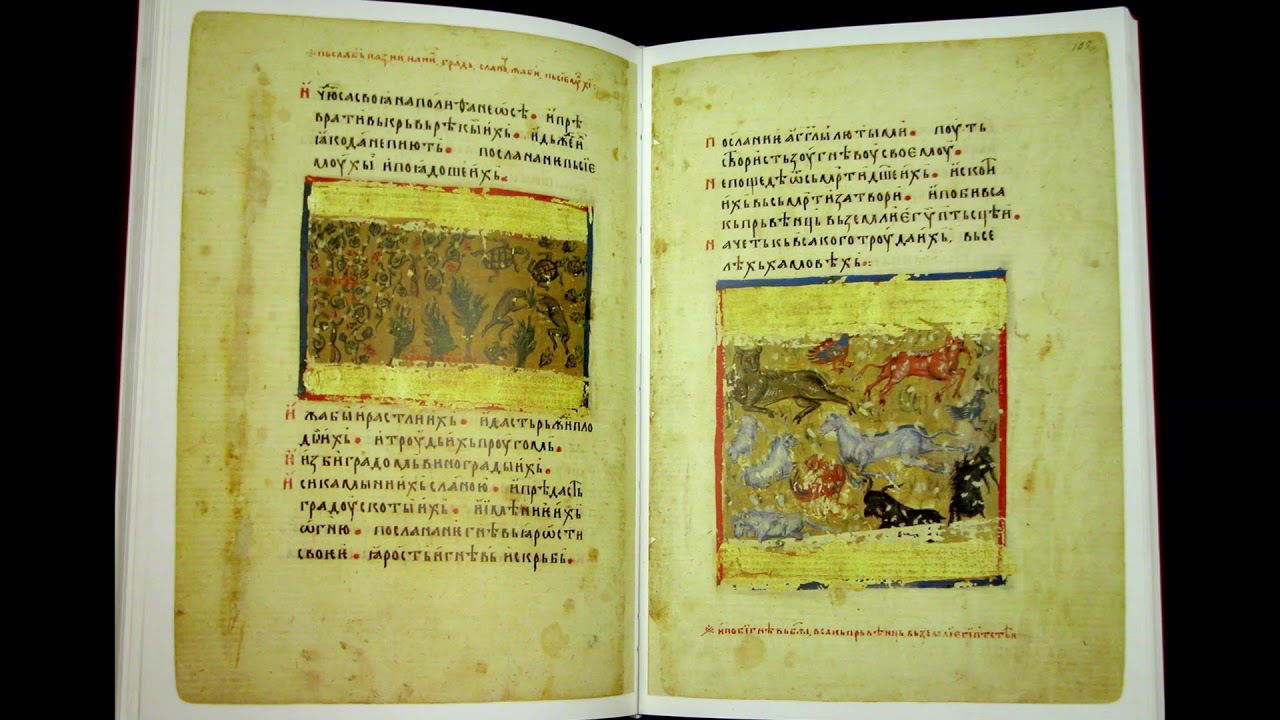 И чю҇са своꙗ на поли ѳанеѡ҇сѣ • и прѣ
врати вь крьвь рѣкы ихь • и
ꙗко да не пиють • посла на ни пьсїе
моухы и погадоше ихь •
И жабы и растли ихь • и дасть рьжи пло
ды ихь • и троуды ихь проугомь •
И изби градомь винограды ихь •
И сикамыни ихь сланою • и прѣдасть
градоу скоты ихь • и имѣнїꙗ ихь
ѡгню • посла на ни гнѣвь ꙗрости
своѥи • ꙗрость и гнѣвь и скрьбь •
105
Посланиѥ аг҃глы лютыми • поуть
створи стьзоу гнѣвоу своѥмоу •
Не пощедѣ ѿ сьмрти дш҃ь ихь • и скот
ихь вь сьмрти затвори • и поби вса
кь прьвѣнць вь земли ѥгѵптьсцѣи •
Начетькь всакого троуда ихь, вь се
лѣхь хамовѣхь